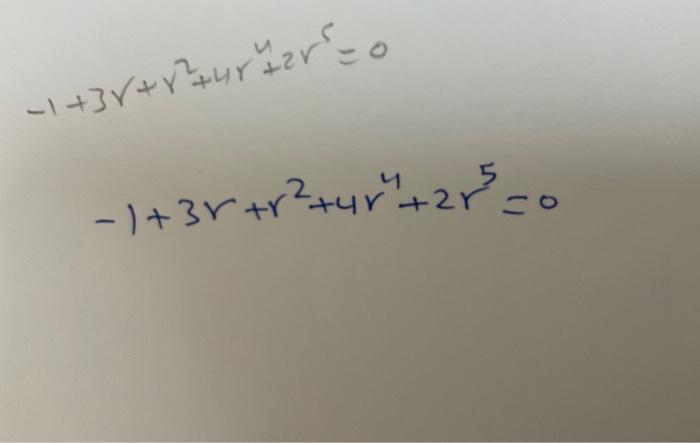 -1+3r+r²+4r⁴+2r⁵=0
-1+3r+r²+4r⁴+2r⁵=0